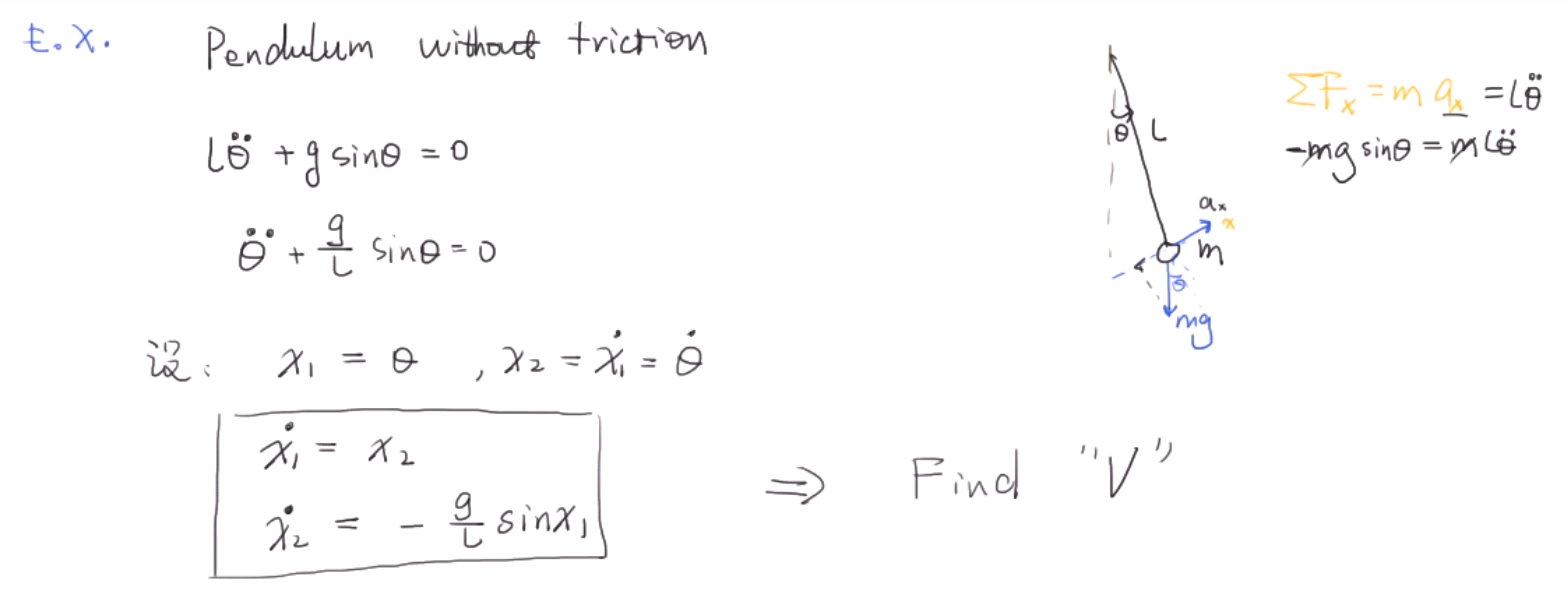 E.X. Pendulum without friction
Lθ̈ + g sinθ = 0
θ̈ + g/L sinθ = 0
设: x₁ = θ , x₂ = ẋ₁ = θ̇
ẋ₁ = x₂
ẋ₂ = - g/L sinx₁
⇒ Find "V"
θ L
aₓ
x
m
θ
mg
ΣFₓ = m aₓ = Lθ̈
-mg sinθ = mLθ̈